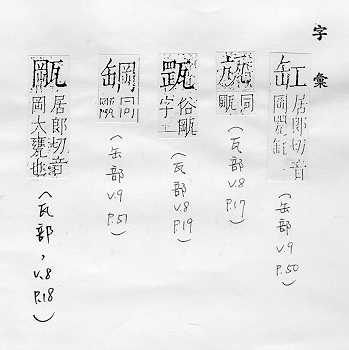 字彙
缸 居郎切音岡
(缶部 v.9 p.50)
同
(瓦部 v.8 p.17)
俗 字
(瓦部 v.8 p.19)
罁 同
(缶部 v.9 p.51)
居郎切音岡大甕也
(瓦部, v.8 p.18)